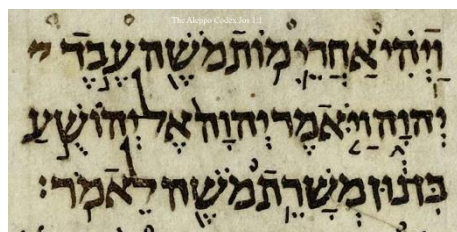 The Aleppo Codex Jos 1:1
וַיְהִי אַחֲרֵי מוֹת מֹשֶׁה עֶבֶד
יְהוָה וַיֹּאמֶר יְהוָה אֶל יְהוֹשֻׁעַ
בִּן נוּן מְשָׁרֵת מֹשֶׁה לֵאמֹר׃